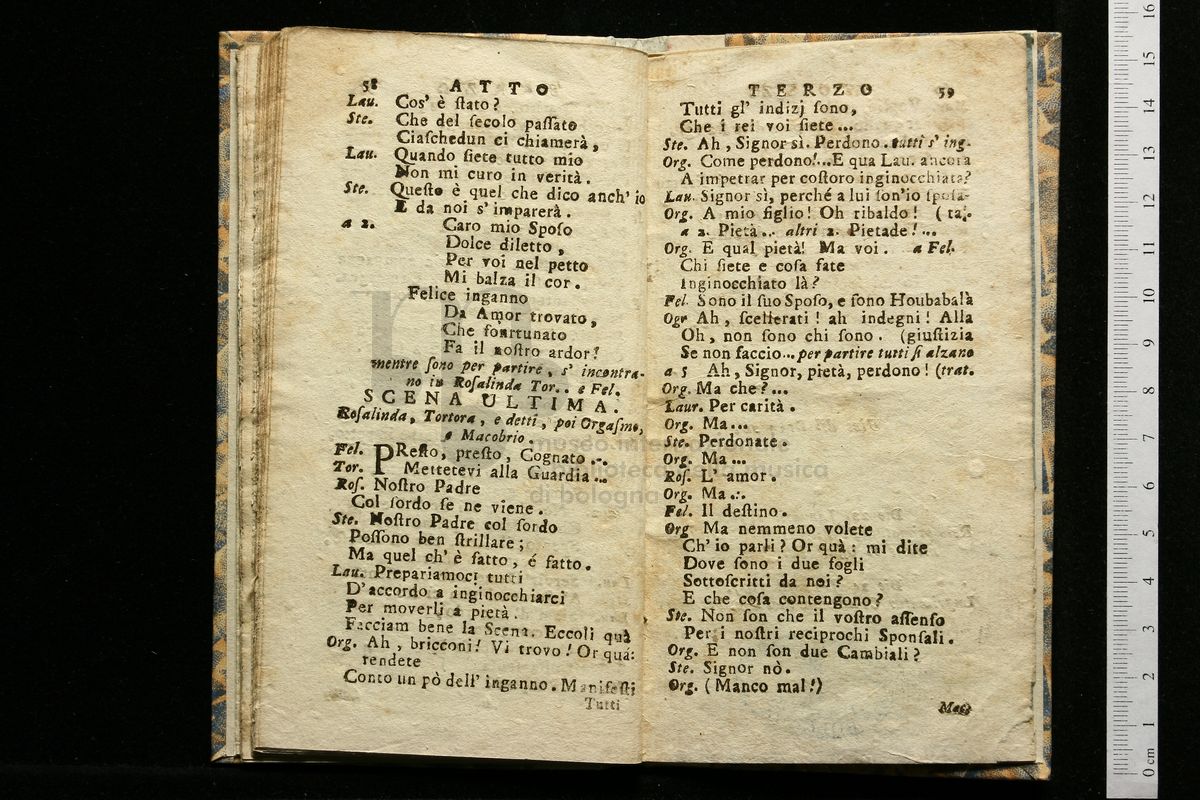 58 ATTO
Lau. Cos' è ſtato?
Ste. Che del ſecolo paſſato
Ciaſchedun ci chiamerà,
Lau. Quando ſiete tutto mio
Non mi curo in verità.
Ste. Queſto è quel che dico anch' io
E da noi s' imparerà.
a 2. Caro mio Spoſo
Dolce diletto,
Per voi nel petto
Mi balza il cor.
Felice inganno
Da Amor trovato,
Che fortunato
Fa il noſtro ardor!
mentre ſono per partire, s' incontra-
no in Roſalinda Tor.. e Fel.
SCENA ULTIMA.
Roſalinda, Tortora, e detti, poi Orgaſmo,
e Macobrio.
Fel. PReſto, preſto, Cognato ...
Tor. Mettetevi alla Guardia...
Roſ. Noſtro Padre
Col ſordo ſe ne viene.
Ste. Noſtro Padre col ſordo
Poſſono ben ſtrillare;
Ma quel ch' è fatto, é fatto.
Lau. Prepariamoci tutti
D'accordo a inginocchiarci
Per moverli a pietà.
Facciam bene la Scena. Eccoli quà
Org. Ah, bricconi! Vi trovo! Or quà:
rendete
Conto un pò dell' inganno. Manifeſti
Tutti
TERZO 59
Tutti gl' indizj ſono,
Che i rei voi ſiete...
Ste. Ah, Signor sì. Perdono. tutti s' ing.
Org. Come perdono!...E qua Lau. ancora
A impetrar per coſtoro inginocchiata?
Lau. Signor sì, perché a lui ſon'io ſpoſa-
Org. A mio figlio! Oh ribaldo! ( ta.
a 2. Pietà.. altri 2. Pietade! ...
Org. E qual pietà! Ma voi. a Fel.
Chi ſiete e coſa fate
Inginocchiato là?
Fel. Sono il ſuo Spoſo, e ſono Houbabalà
Ogr Ah, ſcellerati! ah indegni! Alla
Oh, non ſono chi ſono. (giuſtizia
Se non faccio... per partire tutti ſi alzano
a 5 Ah, Signor, pietà, perdono! (trat.
Org. Ma che?...
Laur. Per carità.
Org. Ma...
Ste. Perdonate.
Org. Ma...
Roſ. L' amor.
Org. Ma...
Fel. Il deſtino.
Org Ma nemmeno volete
Ch' io parli? Or quà: mi dite
Dove ſono i due fogli
Sottoſcritti da noi?
E che coſa contengono?
Ste. Non ſon che il voſtro aſſenſo
Per i noſtri reciprochi Sponſali.
Org. E non ſon due Cambiali?
Ste. Signor nò.
Org. (Manco mal!)
museo internazionale
biblioteca della musica
di bologna
0 cm 1 2 3 4 5 6 7 8 9 10 11 12 13 14 15 16